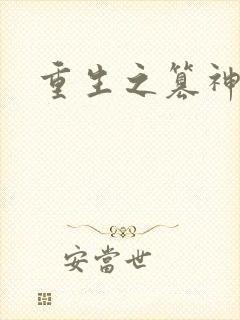 重生之篡神
安當世